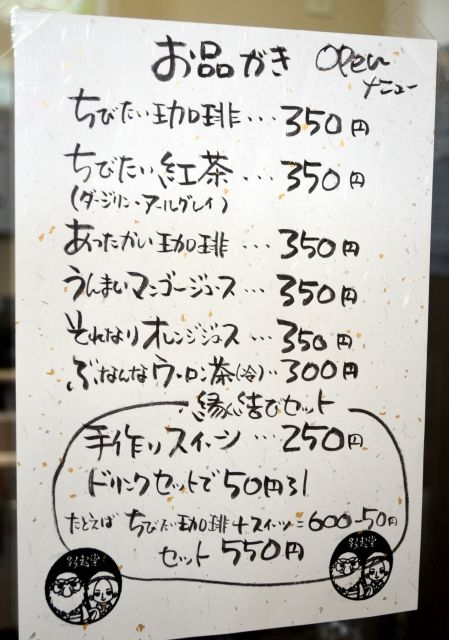 お品がき Open
メニュー
ちびたい珈琲…350円
ちびたい紅茶…350円
(ダージリン・アールグレイ)
あったかい珈琲…350円
うんまいマンゴージュース…350円
それなりオレンジジュース…350円
ぶなんなウーロン茶(冷)…300円
縁結びセット
手作りスイーツ…250円
ドリンクセットで50円引
たとえば ちびたい珈琲+スイーツ=600-50円
セット 550円